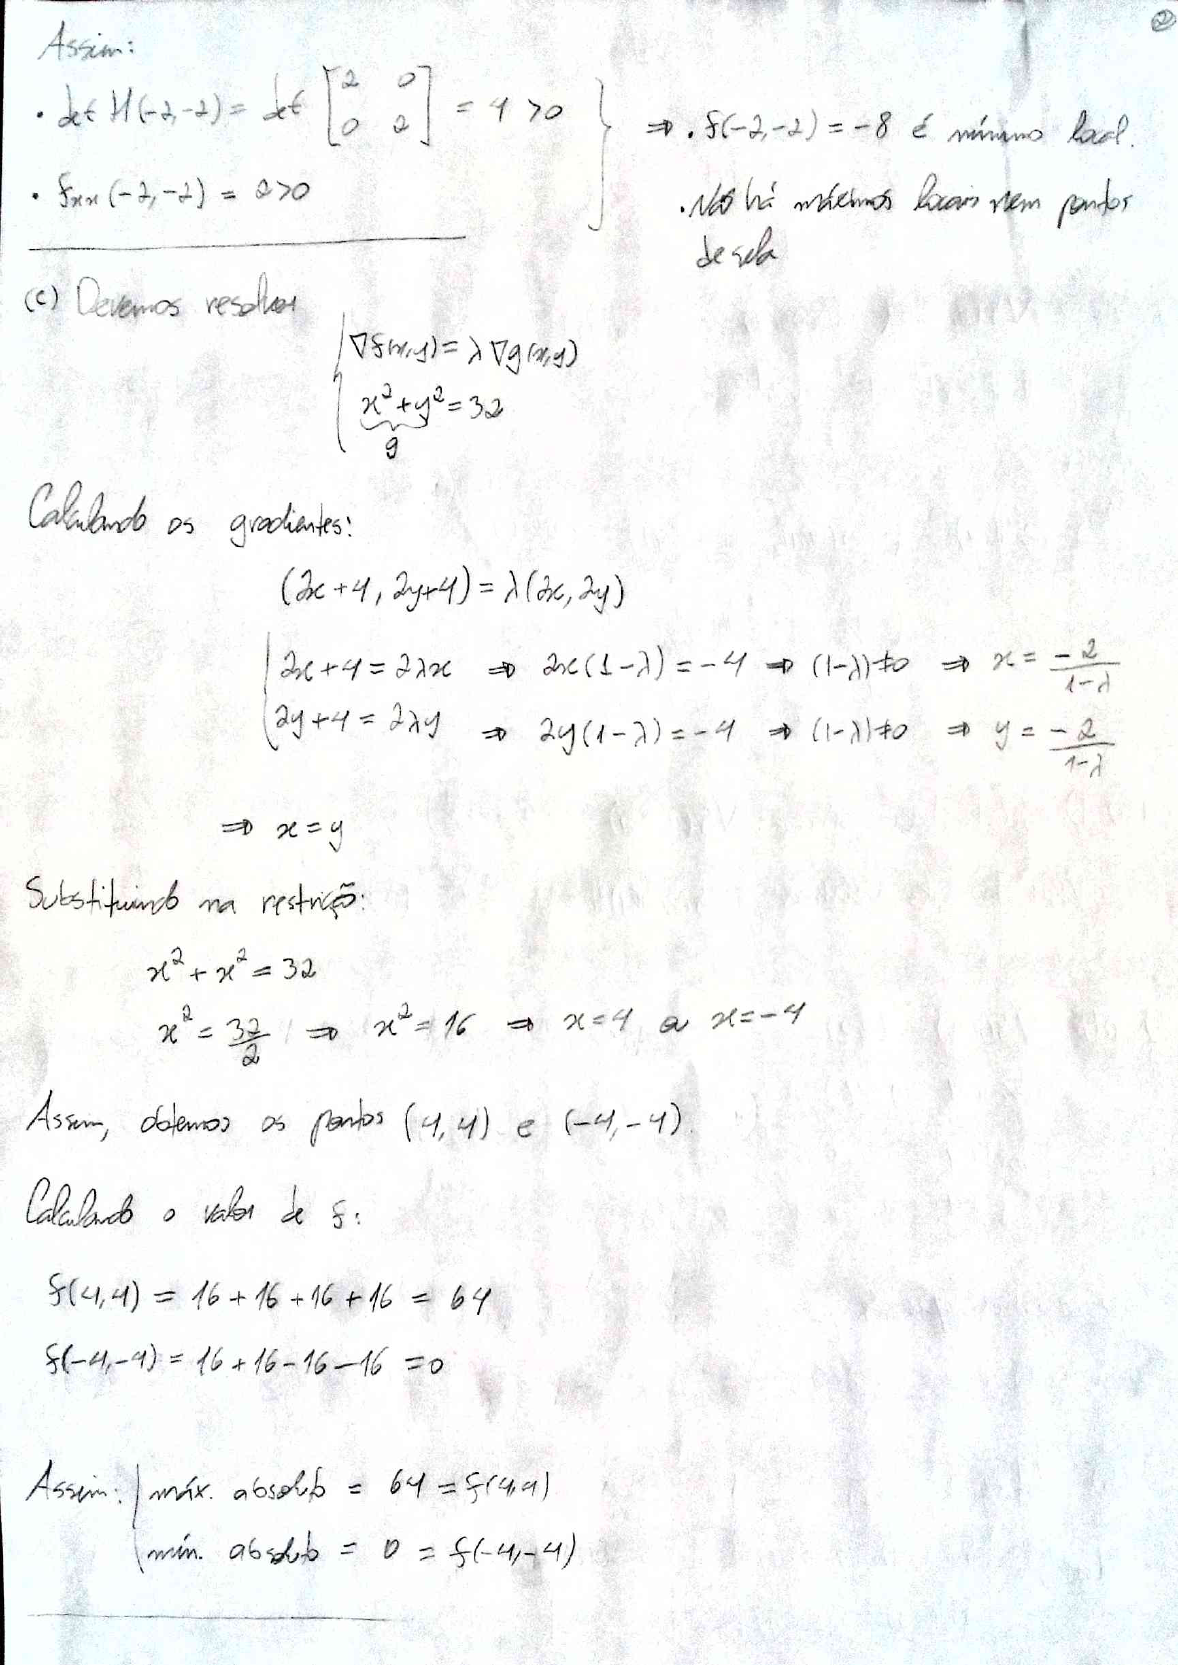 ②
Assim:
• det H(-2,-2) = det [2 0; 0 2] = 4 > 0
⇒ • f(-2,-2) = -8 é mínimo local.
• fxx(-2,-2) = 2 > 0
• Não há máximos locais nem pontos
de sela
(c) Devemos resolver
∇f(x,y) = λ∇g(x,y)
x² + y² = 32
g
Calculando os gradientes:
(2x+4, 2y+4) = λ(2x, 2y)
2x+4 = 2λx ⇒ 2x(1-λ) = -4 ⇒ (1-λ)≠0 ⇒ x = -2/(1-λ)
2y+4 = 2λy ⇒ 2y(1-λ) = -4 ⇒ (1-λ)≠0 ⇒ y = -2/(1-λ)
⇒ x = y
Substituindo na restrição:
x² + x² = 32
x² = 32/2 ⇒ x² = 16 ⇒ x = 4 ou x = -4
Assim, obtemos os pontos (4,4) e (-4,-4).
Calculando o valor de f:
f(4,4) = 16 + 16 + 16 + 16 = 64
f(-4,-4) = 16 + 16 - 16 - 16 = 0
Assim: máx. absoluto = 64 = f(4,4)
mín. absoluto = 0 = f(-4,-4)